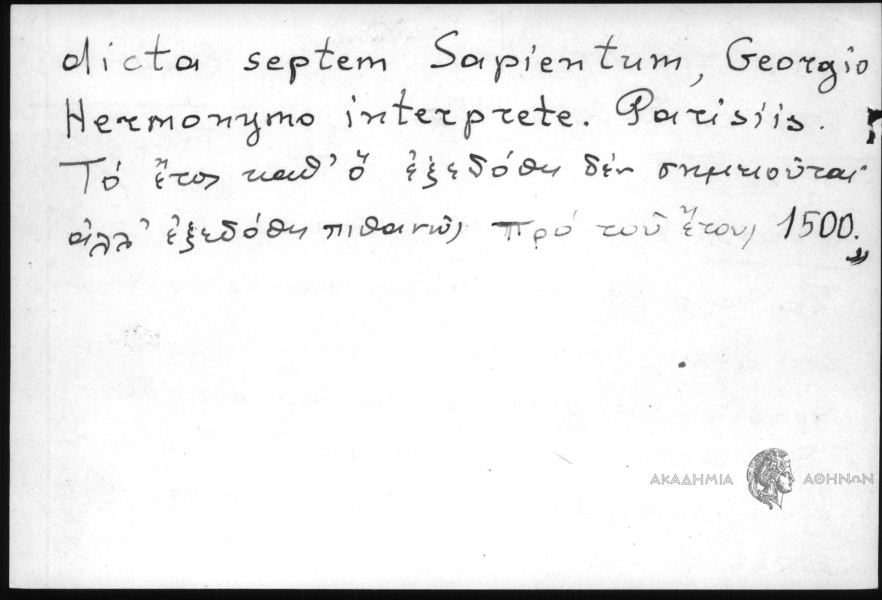 dicta septem Sapientum, Georgio
Hermonymo interprete. Parisiis.
Τό ἔτος καθ' ὅ ἐξεδόθη δέν σημειοῦται
ἀλλ' ἐξεδόθη πιθανῶς πρό τοῦ ἔτους 1500.»
ΑΚΑΔΗΜΙΑ ΑΘΗΝΩΝ